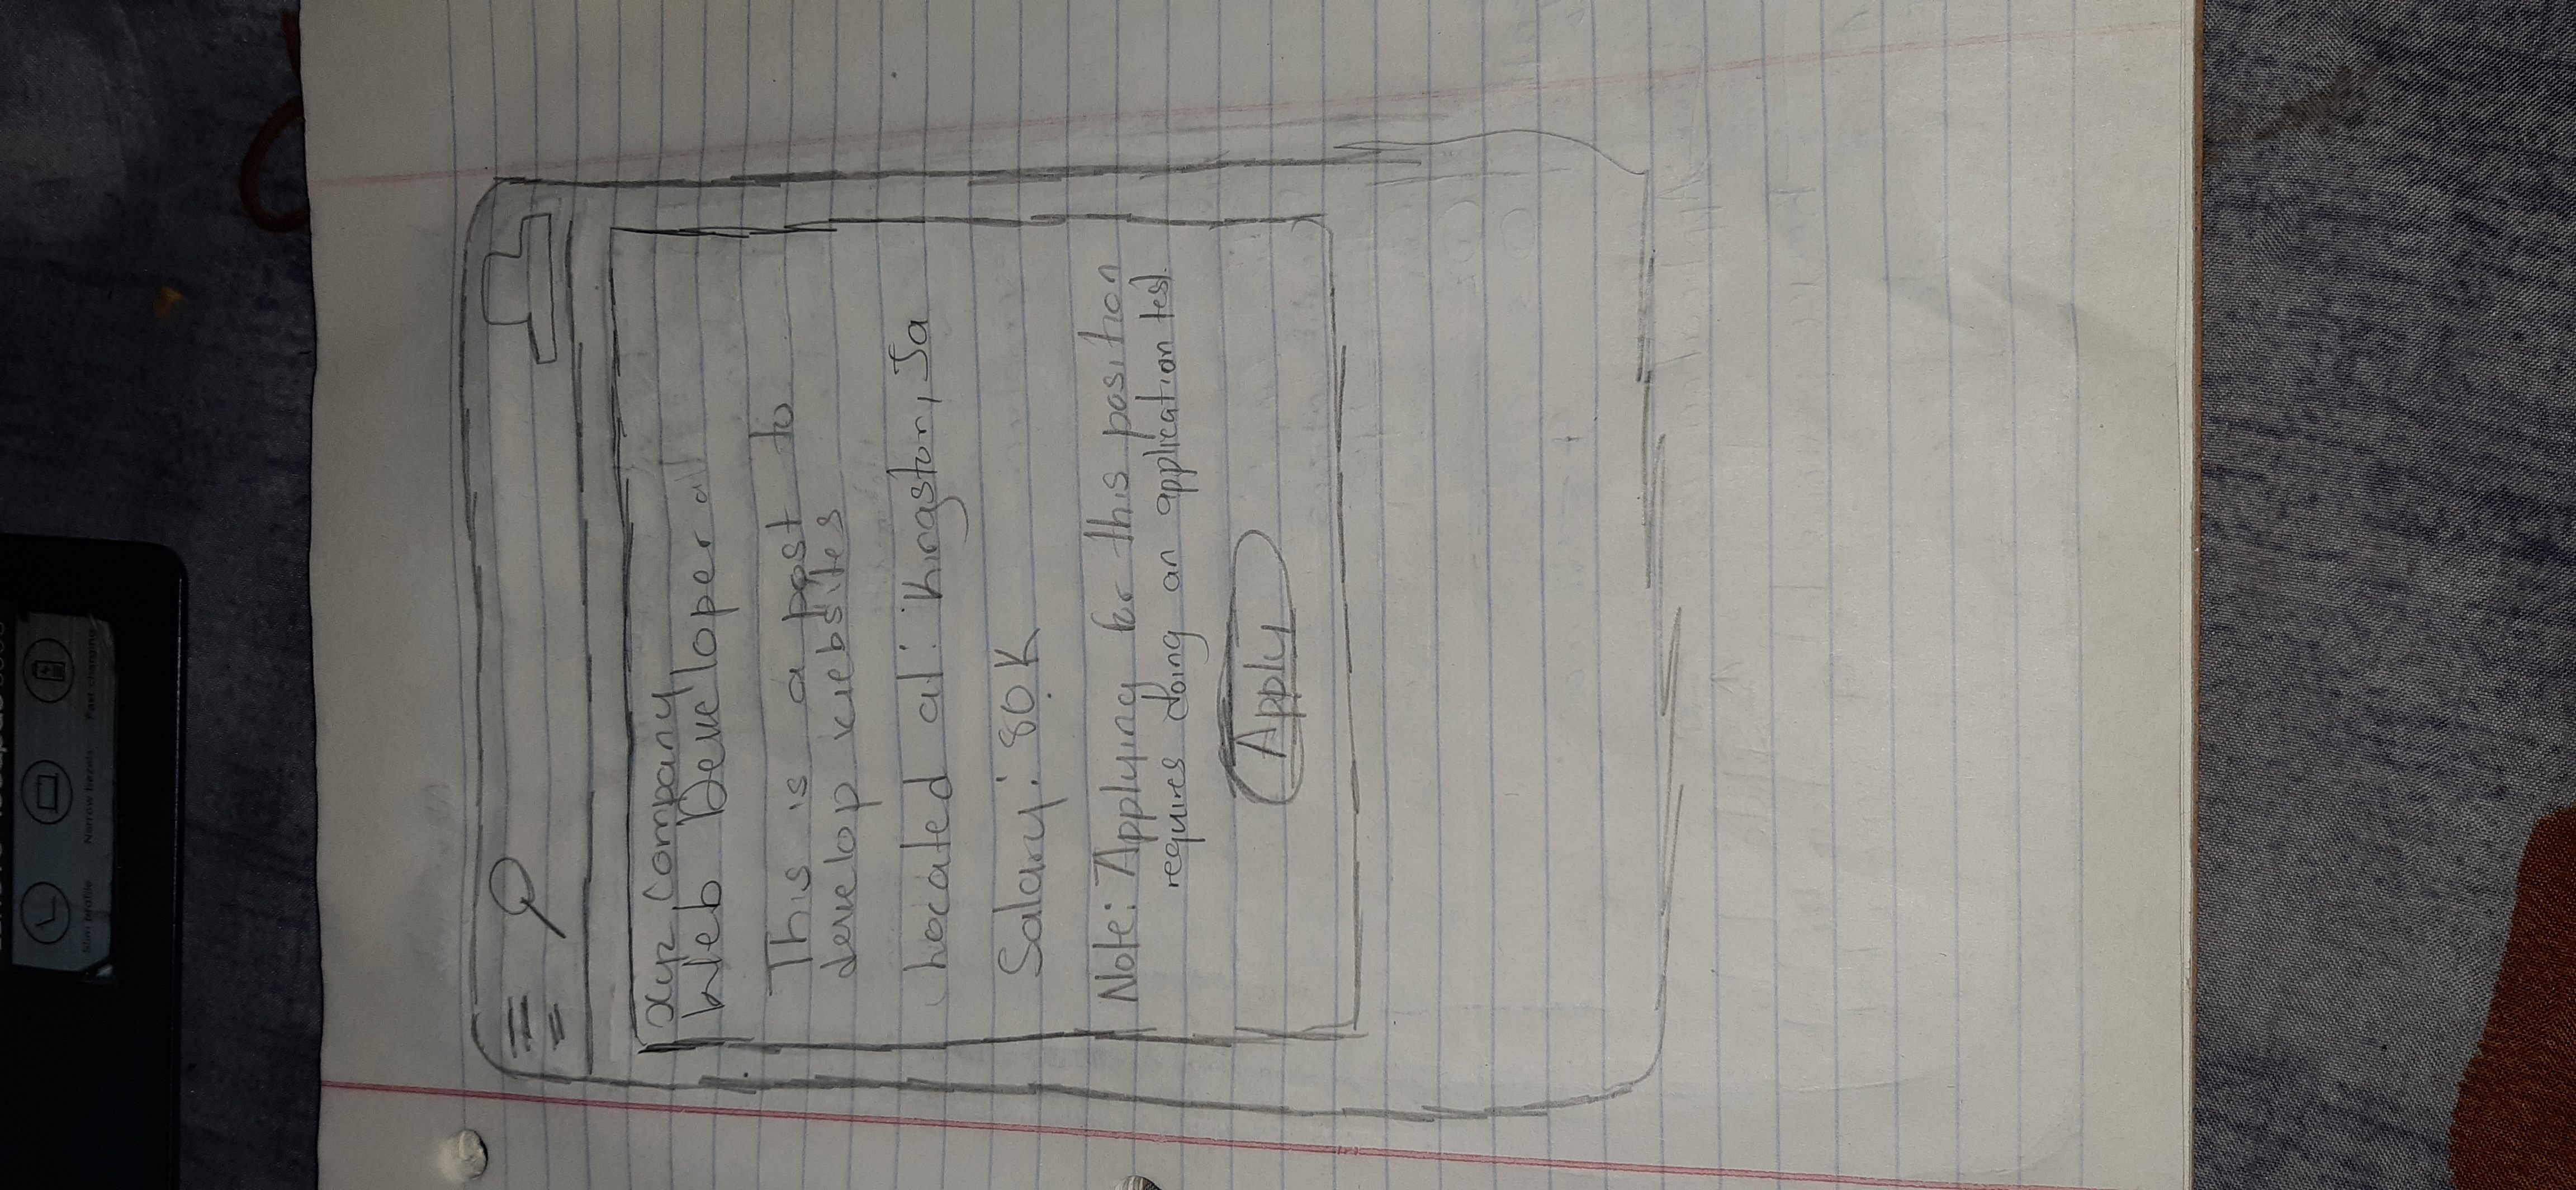 Slim profile Narrow bezels Fast charging
Xyz Company
Web Developer
This is a post to
develop websites
Located at: Kingston, Ja
Salary: 80K
Note: Applying for this position
requires doing an application test.
Apply